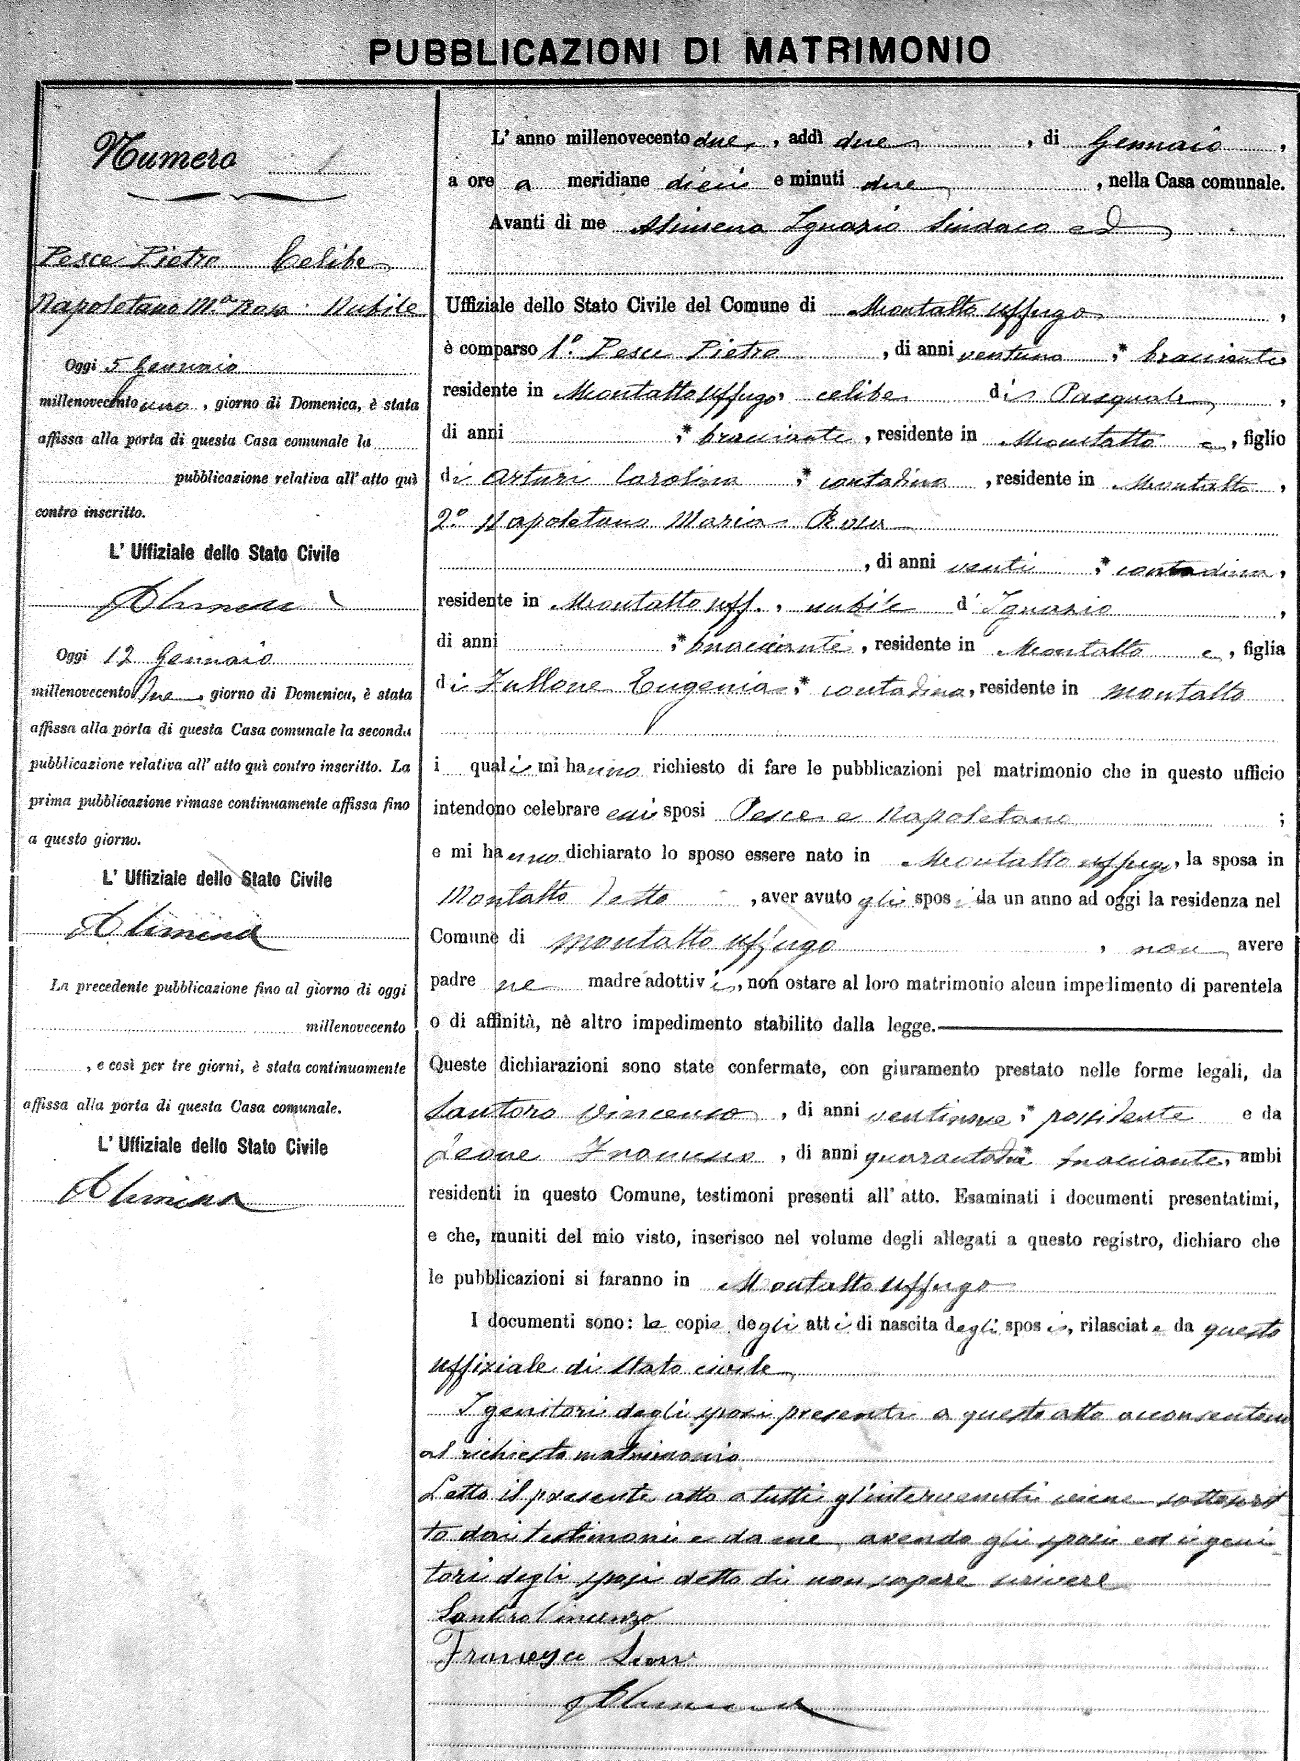 PUBBLICAZIONI DI MATRIMONIO
Numero 1
Pesce Pietro Celibe
Napoletano Mª Rosa Nubile
Oggi 5 Gennaio
millenovecento uno, giorno di Domenica, è stata
affissa alla porta di questa Casa comunale la
pubblicazione relativa all' atto quì
contro inscritto.
L' Uffiziale dello Stato Civile
Alimena
Oggi 12 Gennaio
millenovecento due, giorno di Domenica, è stata
affissa alla porta di questa Casa comunale la seconda
pubblicazione relativa all' atto quì contro inscritto. La
prima pubblicazione rimase continuamente affissa fino
a questo giorno.
L' Uffiziale dello Stato Civile
Alimena
La precedente pubblicazione fino al giorno di oggi
millenovecento
, e così per tre giorni, è stata continuamente
affissa alla porta di questa Casa comunale.
L' Uffiziale dello Stato Civile
Alimena
L' anno millenovecento due, addì due, di Gennaio,
a ore a meridiane dieci e minuti due, nella Casa comunale.
Avanti di me Alimena Ignazio Sindaco ed
Uffiziale dello Stato Civile del Comune di Montalto Uffugo,
è comparso 1º. Pesce Pietro, di anni ventuno,* bracciante
residente in Montalto Uffugo, celibe di Pasquale,
di anni ,* bracciante, residente in Montalto e, figlio
di Arturi Carolina,* contadina, residente in Montalto,
2º Napoletano Maria Rosa
, di anni venti,* contadina,
residente in Montalto Uff., nubile d' Ignazio,
di anni ,* bracciante, residente in Montalto e, figlia
di Fullone Eugenia,* contadina, residente in Montalto
i quali mi hanno richiesto di fare le pubblicazioni pel matrimonio che in questo ufficio
intendono celebrare essi sposi Pesce e Napoletano;
e mi hanno dichiarato lo sposo essere nato in Montalto Uffugo, la sposa in
Montalto detto, aver avuto gli sposi da un anno ad oggi la residenza nel
Comune di Montalto Uffugo, non avere
padre ne madre adottivi, non ostare al loro matrimonio alcun impedimento di parentela
o di affinità, nè altro impedimento stabilito dalla legge.
Queste dichiarazioni sono state confermate, con giuramento prestato nelle forme legali, da
Santoro Vincenzo, di anni ventinove,* possidente e da
Leone Francesco, di anni * bracciante, ambi
residenti in questo Comune, testimoni presenti all' atto. Esaminati i documenti presentatimi,
e che, muniti del mio visto, inserisco nel volume degli allegati a questo registro, dichiaro che
le pubblicazioni si faranno in Montalto Uffugo
I documenti sono: le copie degli atti di nascita degli sposi, rilasciate da questo
uffiziale di stato civile
I genitori degli sposi presenti a questo atto acconsentono
al richiesto matrimonio
Letto il presente atto a tutti gl'intervenuti viene sottoscrit
to dai testimoni e da me avendo gli sposi ed i geni-
tori degli sposi detto di non sapere scrivere
Santoro Vincenzo
Francesco Leone
Alimena